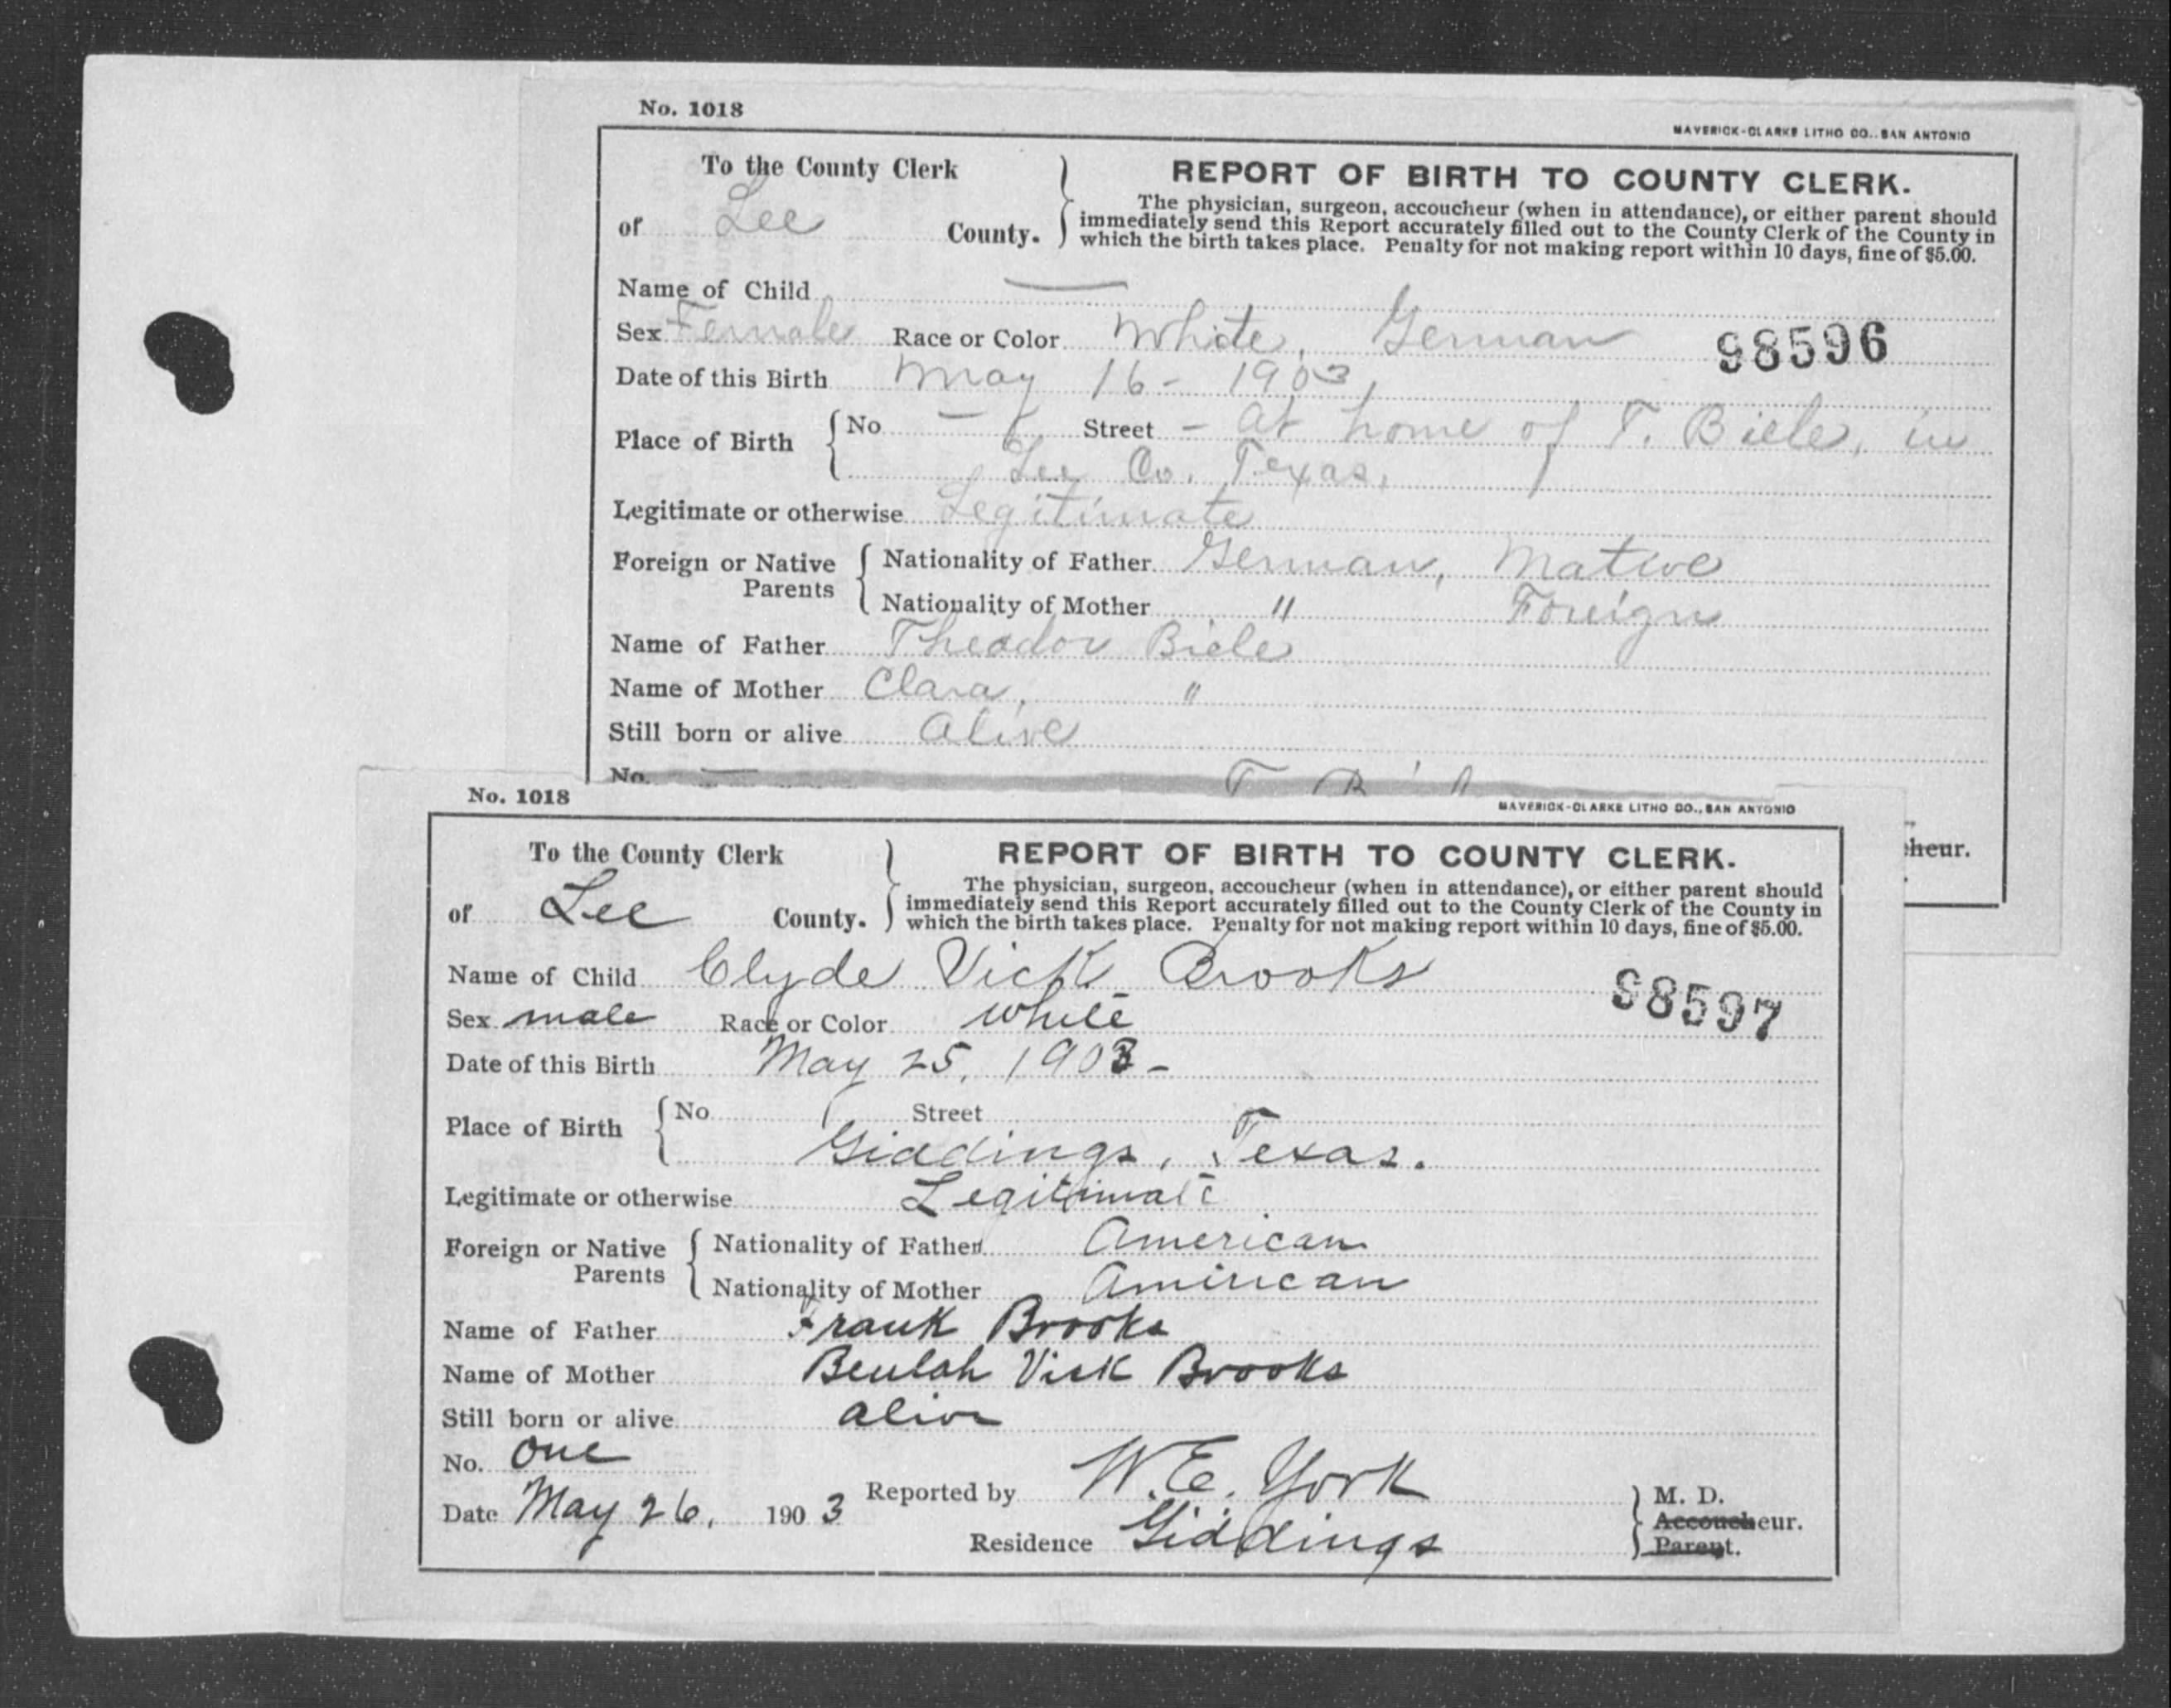 No. 1018
MAVERICK-CLARKE LITHO CO., SAN ANTONIO
To the County Clerk
of Lee County.
REPORT OF BIRTH TO COUNTY CLERK.
The physician, surgeon, accoucheur (when in attendance), or either parent should
immediately send this Report accurately filled out to the County Clerk of the County in
which the birth takes place. Penalty for not making report within 10 days, fine of $5.00.
Name of Child —
Sex Female Race or Color White, German 98596
Date of this Birth May 16 - 1903,
Place of Birth No — Street - At home of T. Biele, in
Lee Co. Texas,
Legitimate or otherwise Legitimate
Foreign or Native Parents
Nationality of Father German, Native
Nationality of Mother " Foreign
Name of Father Theodor Biele
Name of Mother Clara, "
Still born or alive Alive
No. —
cheur.
No. 1018
MAVERICK-CLARKE LITHO CO., SAN ANTONIO
To the County Clerk
of Lee County.
REPORT OF BIRTH TO COUNTY CLERK.
The physician, surgeon, accoucheur (when in attendance), or either parent should
immediately send this Report accurately filled out to the County Clerk of the County in
which the birth takes place. Penalty for not making report within 10 days, fine of $5.00.
Name of Child Clyde Vick Brooks 98597
Sex male Race or Color white
Date of this Birth May 25, 1903 -
Place of Birth No Street
Giddings, Texas.
Legitimate or otherwise Legitimate
Foreign or Native Parents
Nationality of Father American
Nationality of Mother American
Name of Father Frank Brooks
Name of Mother Beulah Vick Brooks
Still born or alive alive
No. One
Date May 26, 1903 Reported by W. E. York M. D.
Accoucheur.
Residence Giddings Parent.